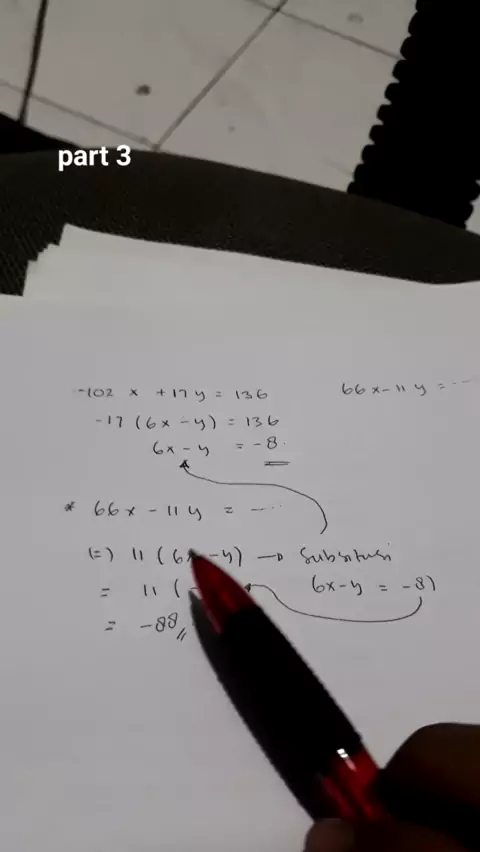 part 3
-102 x + 17 y = 136
66x - 11 y = ...
-17 (6x - y) = 136
6x - y = -8.
* 66x - 11 y = ....
(=) 11 (6x - y) → Subsitusi
= 11 ( 6x - y = -8)
= -88 //